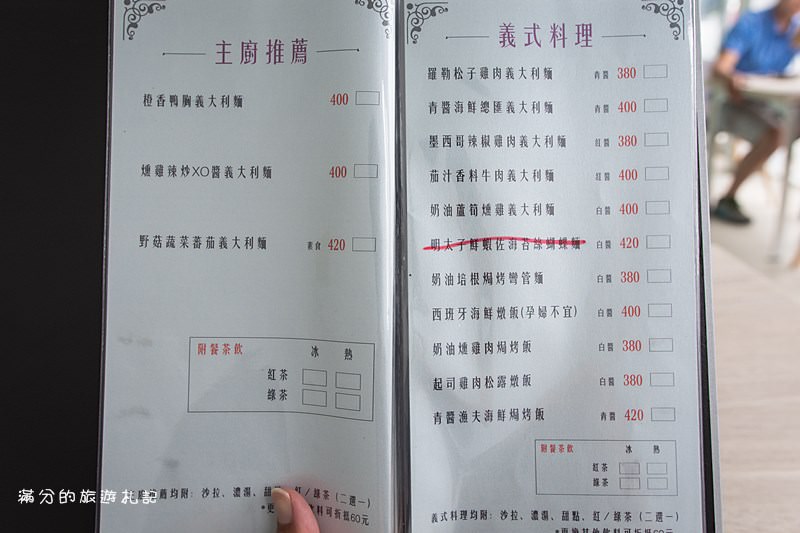 主廚推薦
橙香鴨胸義大利麵 400
燻雞辣炒XO醬義大利麵 400
野菇蔬菜蕃茄義大利麵 素食 420
附餐茶飲 冰 熱
紅茶
綠茶
均附：沙拉、濃湯、甜 紅/綠茶(二選一)
*更 料可折抵60元
義式料理
羅勒松子雞肉義大利麵 青醬 380
青醬海鮮總匯義大利麵 青醬 400
墨西哥辣椒雞肉義大利麵 紅醬 380
茄汁香料牛肉義大利麵 紅醬 400
奶油蘆筍燻雞義大利麵 白醬 400
明太子鮮蝦佐海苔絲蝴蝶麵 白醬 420
奶油培根焗烤彎管麵 白醬 380
西班牙海鮮燉飯(孕婦不宜) 白醬 400
奶油燻雞肉焗烤飯 白醬 380
起司雞肉松露燉飯 白醬 380
青醬漁夫海鮮焗烤飯 青醬 420
附餐茶飲 冰 熱
紅茶
綠茶
義式料理均附：沙拉、濃湯、甜點、紅/綠茶(二選一)
*更換其他飲料可折抵60元
滿分的旅遊札記